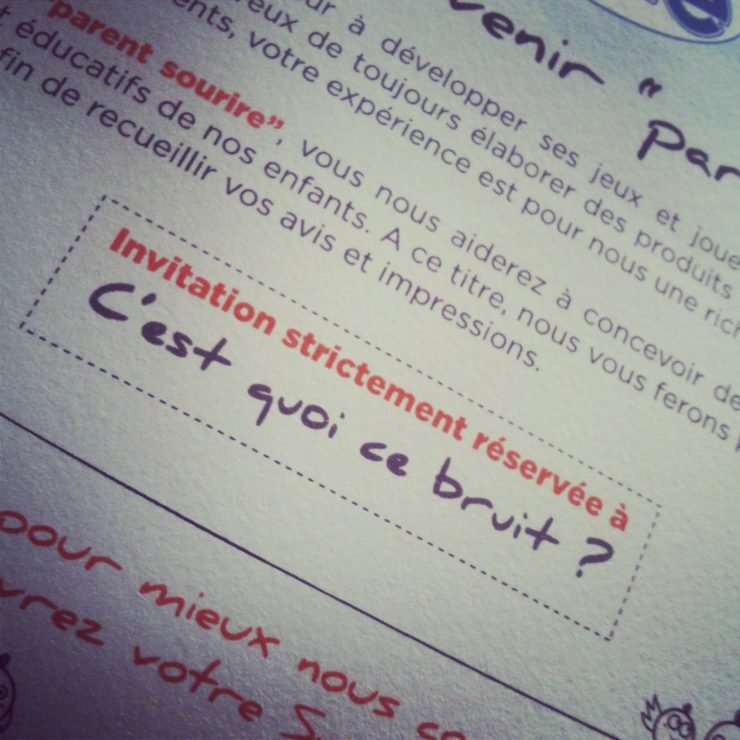 venir “ Par
à développer ses jeux et joue
eux de toujours élaborer des produits
ents, votre expérience est pour nous une rich
“parent sourire”, vous nous aiderez à concevoir de
t éducatifs de nos enfants. A ce titre, nous vous ferons
fin de recueillir vos avis et impressions.
Invitation strictement réservée à
C'est quoi ce bruit ?
pour mieux nous co
vrez votre S